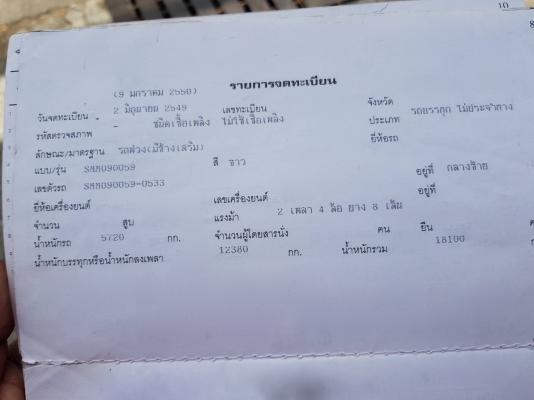 10
8
(9 มกราคม 2550) รายการจดทะเบียน
วันจดทะเบียน 2 มิถุนายน 2549 เลขทะเบียน จังหวัด
รหัสตรวจสภาพ - ชนิดเชื้อเพลิง ไม่ใช้เชื้อเพลิง ประเภท รถบรรทุก ไม่ประจำทาง
ลักษณะ/มาตรฐาน รถพ่วง(มีข้างเสริม) ยี่ห้อรถ
แบบ/รุ่น SMM090059 สี ขาว
เลขตัวรถ SMM090059-0533 อยู่ที่ กลางซ้าย
ยี่ห้อเครื่องยนต์ เลขเครื่องยนต์ อยู่ที่
จำนวน สูบ แรงม้า 2 เพลา 4 ล้อ ยาง 8 เส้น
น้ำหนักรถ 5720 กก. จำนวนผู้โดยสารนั่ง คน ยืน
น้ำหนักบรรทุกหรือน้ำหนักลงเพลา 12380 กก. น้ำหนักรวม 18100